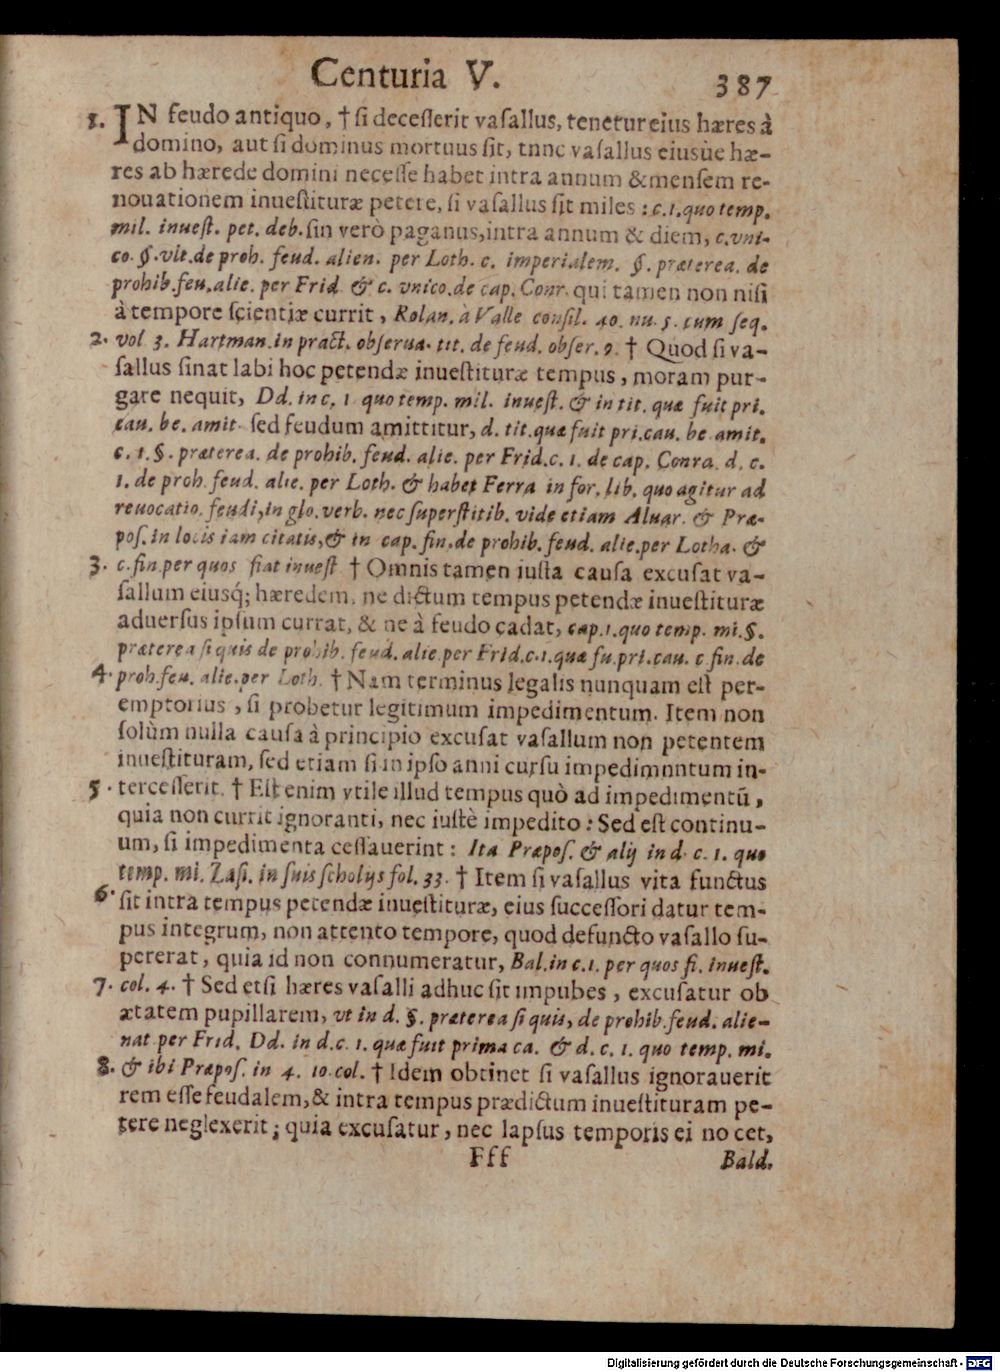 Centuria V. 387
1. IN feudo antiquo, † ſi deceſſerit vaſallus, tenetur eius hæres à
domino, aut ſi dominus mortuus ſit, tnnc vaſallus eiusùe hæ-
res ab hærede domini neceſſe habet intra annum & menſem re-
nouationem inueſtituræ petere, ſi vaſallus ſit miles : c.1. quo temp.
mil. inueſt. pet. deb. ſin verò paganus, intra annum & diem, c. vni-
co. §. vlt. de proh. feud. alien. per Loth. c. imperialem. §. præterea. de
prohib. feu. alie. per Frid & c. vnico. de cap. Conr. qui tamen non niſi
à tempore ſcientiæ currit, Rolan. à Valle conſil. 40. nu. 5. cum ſeq.
2. vol 3. Hartman. in pract. obſerua. tit. de feud. obſer. 9. † Quod ſi va-
ſallus ſinat labi hoc petendæ inueſtituræ tempus, moram pur-
gare nequit, Dd. in c. 1 quo temp. mil. inueſt. & in tit. quæ fuit pri.
cau. be. amit. ſed feudum amittitur, d. tit. quæ fuit pri. cau. be. amit.
c. 1. §. præterea. de prohib. feud. alie. per Frid. c. 1. de cap. Conra. d. c.
1. de proh. feud. alie. per Loth. & habet Ferra in for. lib. quo agitur ad
reuocatio. feudi, in glo. verb. nec ſuperſtitib. vide etiam Aluar. & Præ-
poſ. in locis iam citatis, & in cap. fin. de prohib. feud. alie. per Lotha. &
3. c. fin. per quos fiat inueſt † Omnis tamen iuſta cauſa excuſat va-
ſallum eiusq́; hæredem, ne dictum tempus petendæ inueſtituræ
aduerſus ipſum currat, & ne à feudo cadat, cap. 1. quo temp. mi. §.
præterea ſi quis de prohib. feud. alie. per Frid. c. 1. quæ fu. pri. cau. c fin. de
4. proh. feu. alie. per Loth. † Nam terminus legalis nunquam eſt per-
emptorius, ſi probetur legitimum impedimentum. Item non
ſolùm nulla cauſa à principio excuſat vaſallum non petentem
inueſtituram, ſed etiam ſi in ipſo anni curſu impedimnntum in-
5. terceſſerit. † Eſt enim vtile illud tempus quò ad impedimentū,
quia non currit ignoranti, nec iuſtè impedito : Sed eſt continu-
um, ſi impedimenta ceſſauerint : Ita Præpoſ. & alij in d. c. 1. quo
temp. mi. Zaſi. in ſuis ſcholijs fol. 33. † Item ſi vaſallus vita functus
6. ſit intra tempus petendæ inueſtituræ, eius ſucceſſori datur tem-
pus integrum, non attento tempore, quod defuncto vaſallo ſu-
pererat, quia id non connumeratur, Bal. in c. 1. per quos fi. inueſt.
7. col. 4. † Sed etſi hæres vaſalli adhuc ſit impubes, excuſatur ob
ætatem pupillarem, vt in d. §. præterea ſi quis, de prohib. feud. alie-
nat per Frid. Dd. in d. c. 1. quæ fuit prima ca. & d. c. 1. quo temp. mi.
8. & ibi Præpoſ. in 4. 10. col. † Idem obtinet ſi vaſallus ignorauerit
rem eſſe feudalem, & intra tempus prædictum inueſtituram pe-
tere neglexerit; quia excuſatur, nec lapſus temporis ei no cet,
Fff Bald.
Digitalisierung gefördert durch die Deutsche Forschungsgemeinschaft - DFG